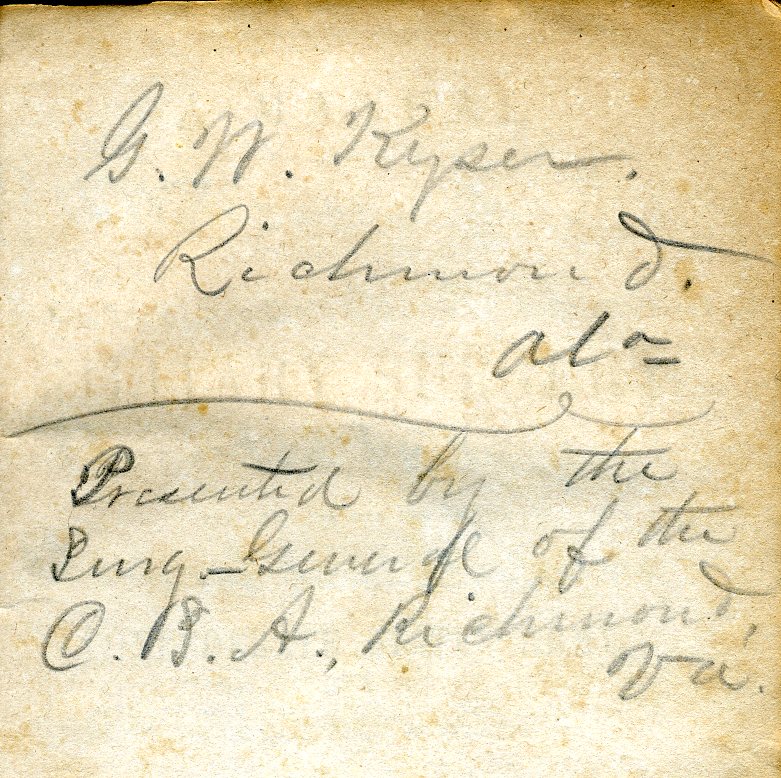 G. W. Kyser.
Richmond.
Ala
Presented by the
Surg.-General of the
C. S. A., Richmond,
Va.